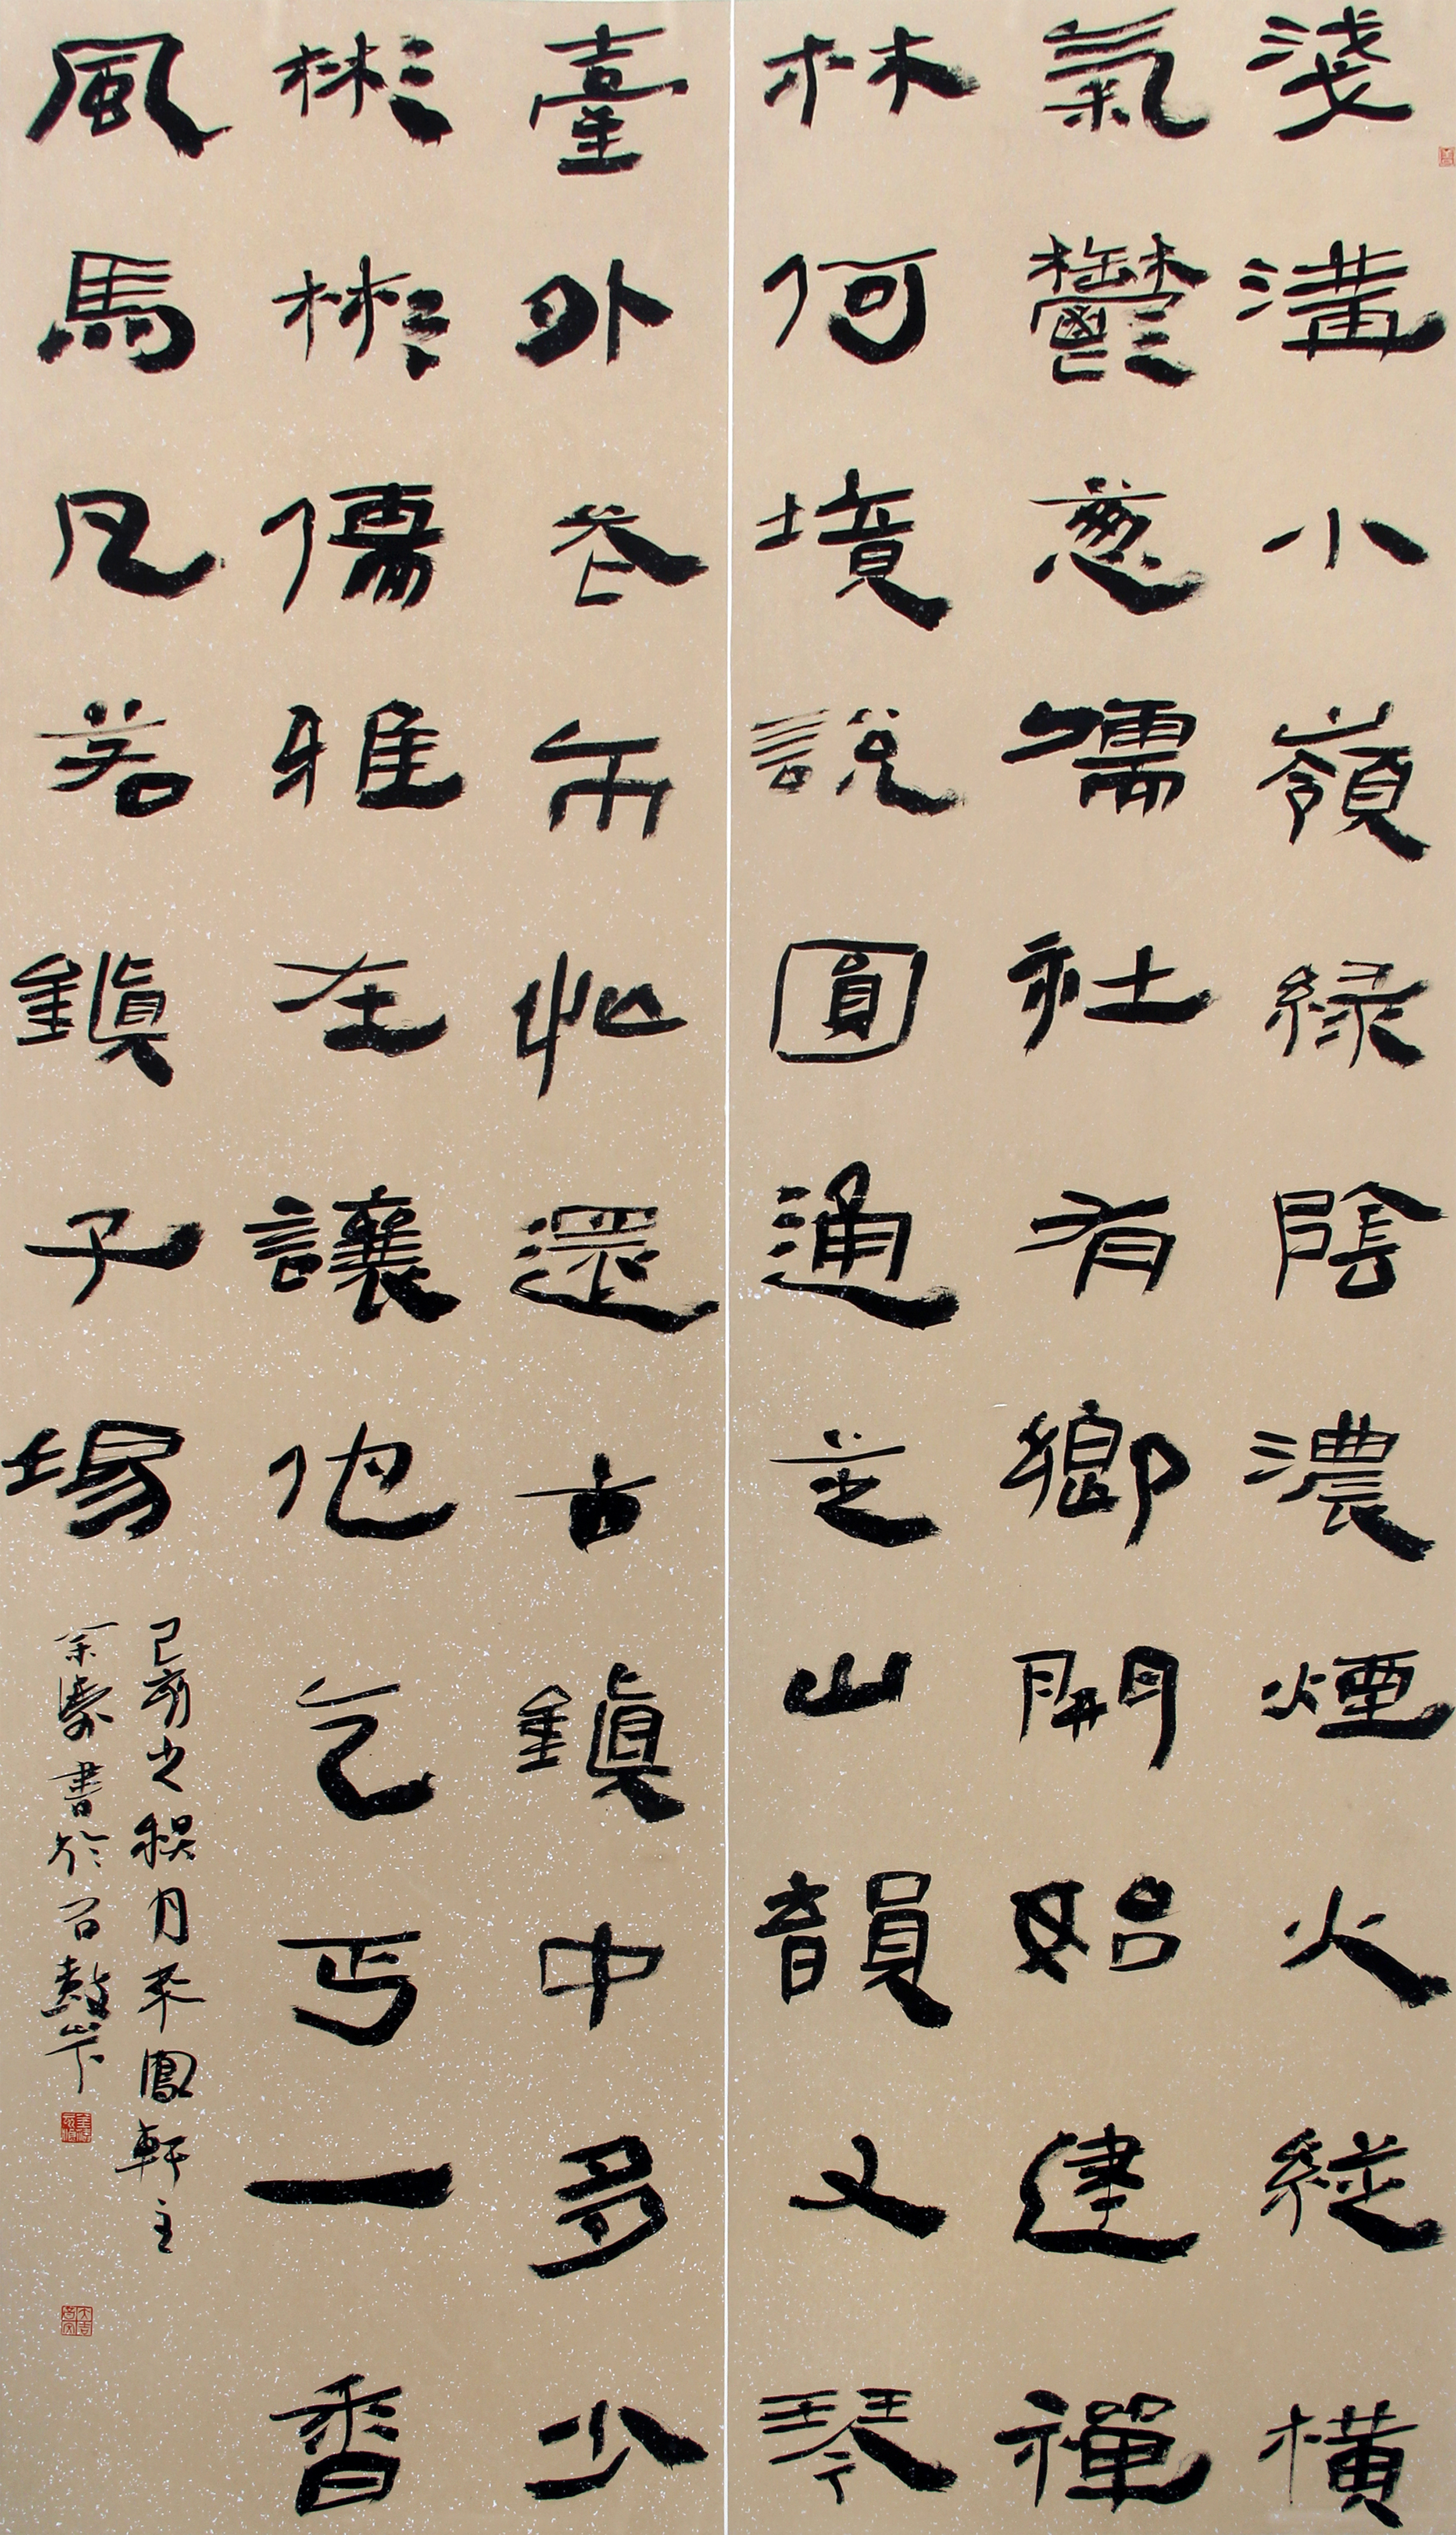 淺溝小嶺綠陰濃煙火縱橫
氣鬱蔥儒社有鄉開始建禪
林何境說圓通芝山韻又琴
臺外巷市忙還古鎮中多少
彬彬儒雅在讓他乞丐一香
風馬凡若鎮子場
己亥之秋月來鳳軒主
余濤書於石鼓山下